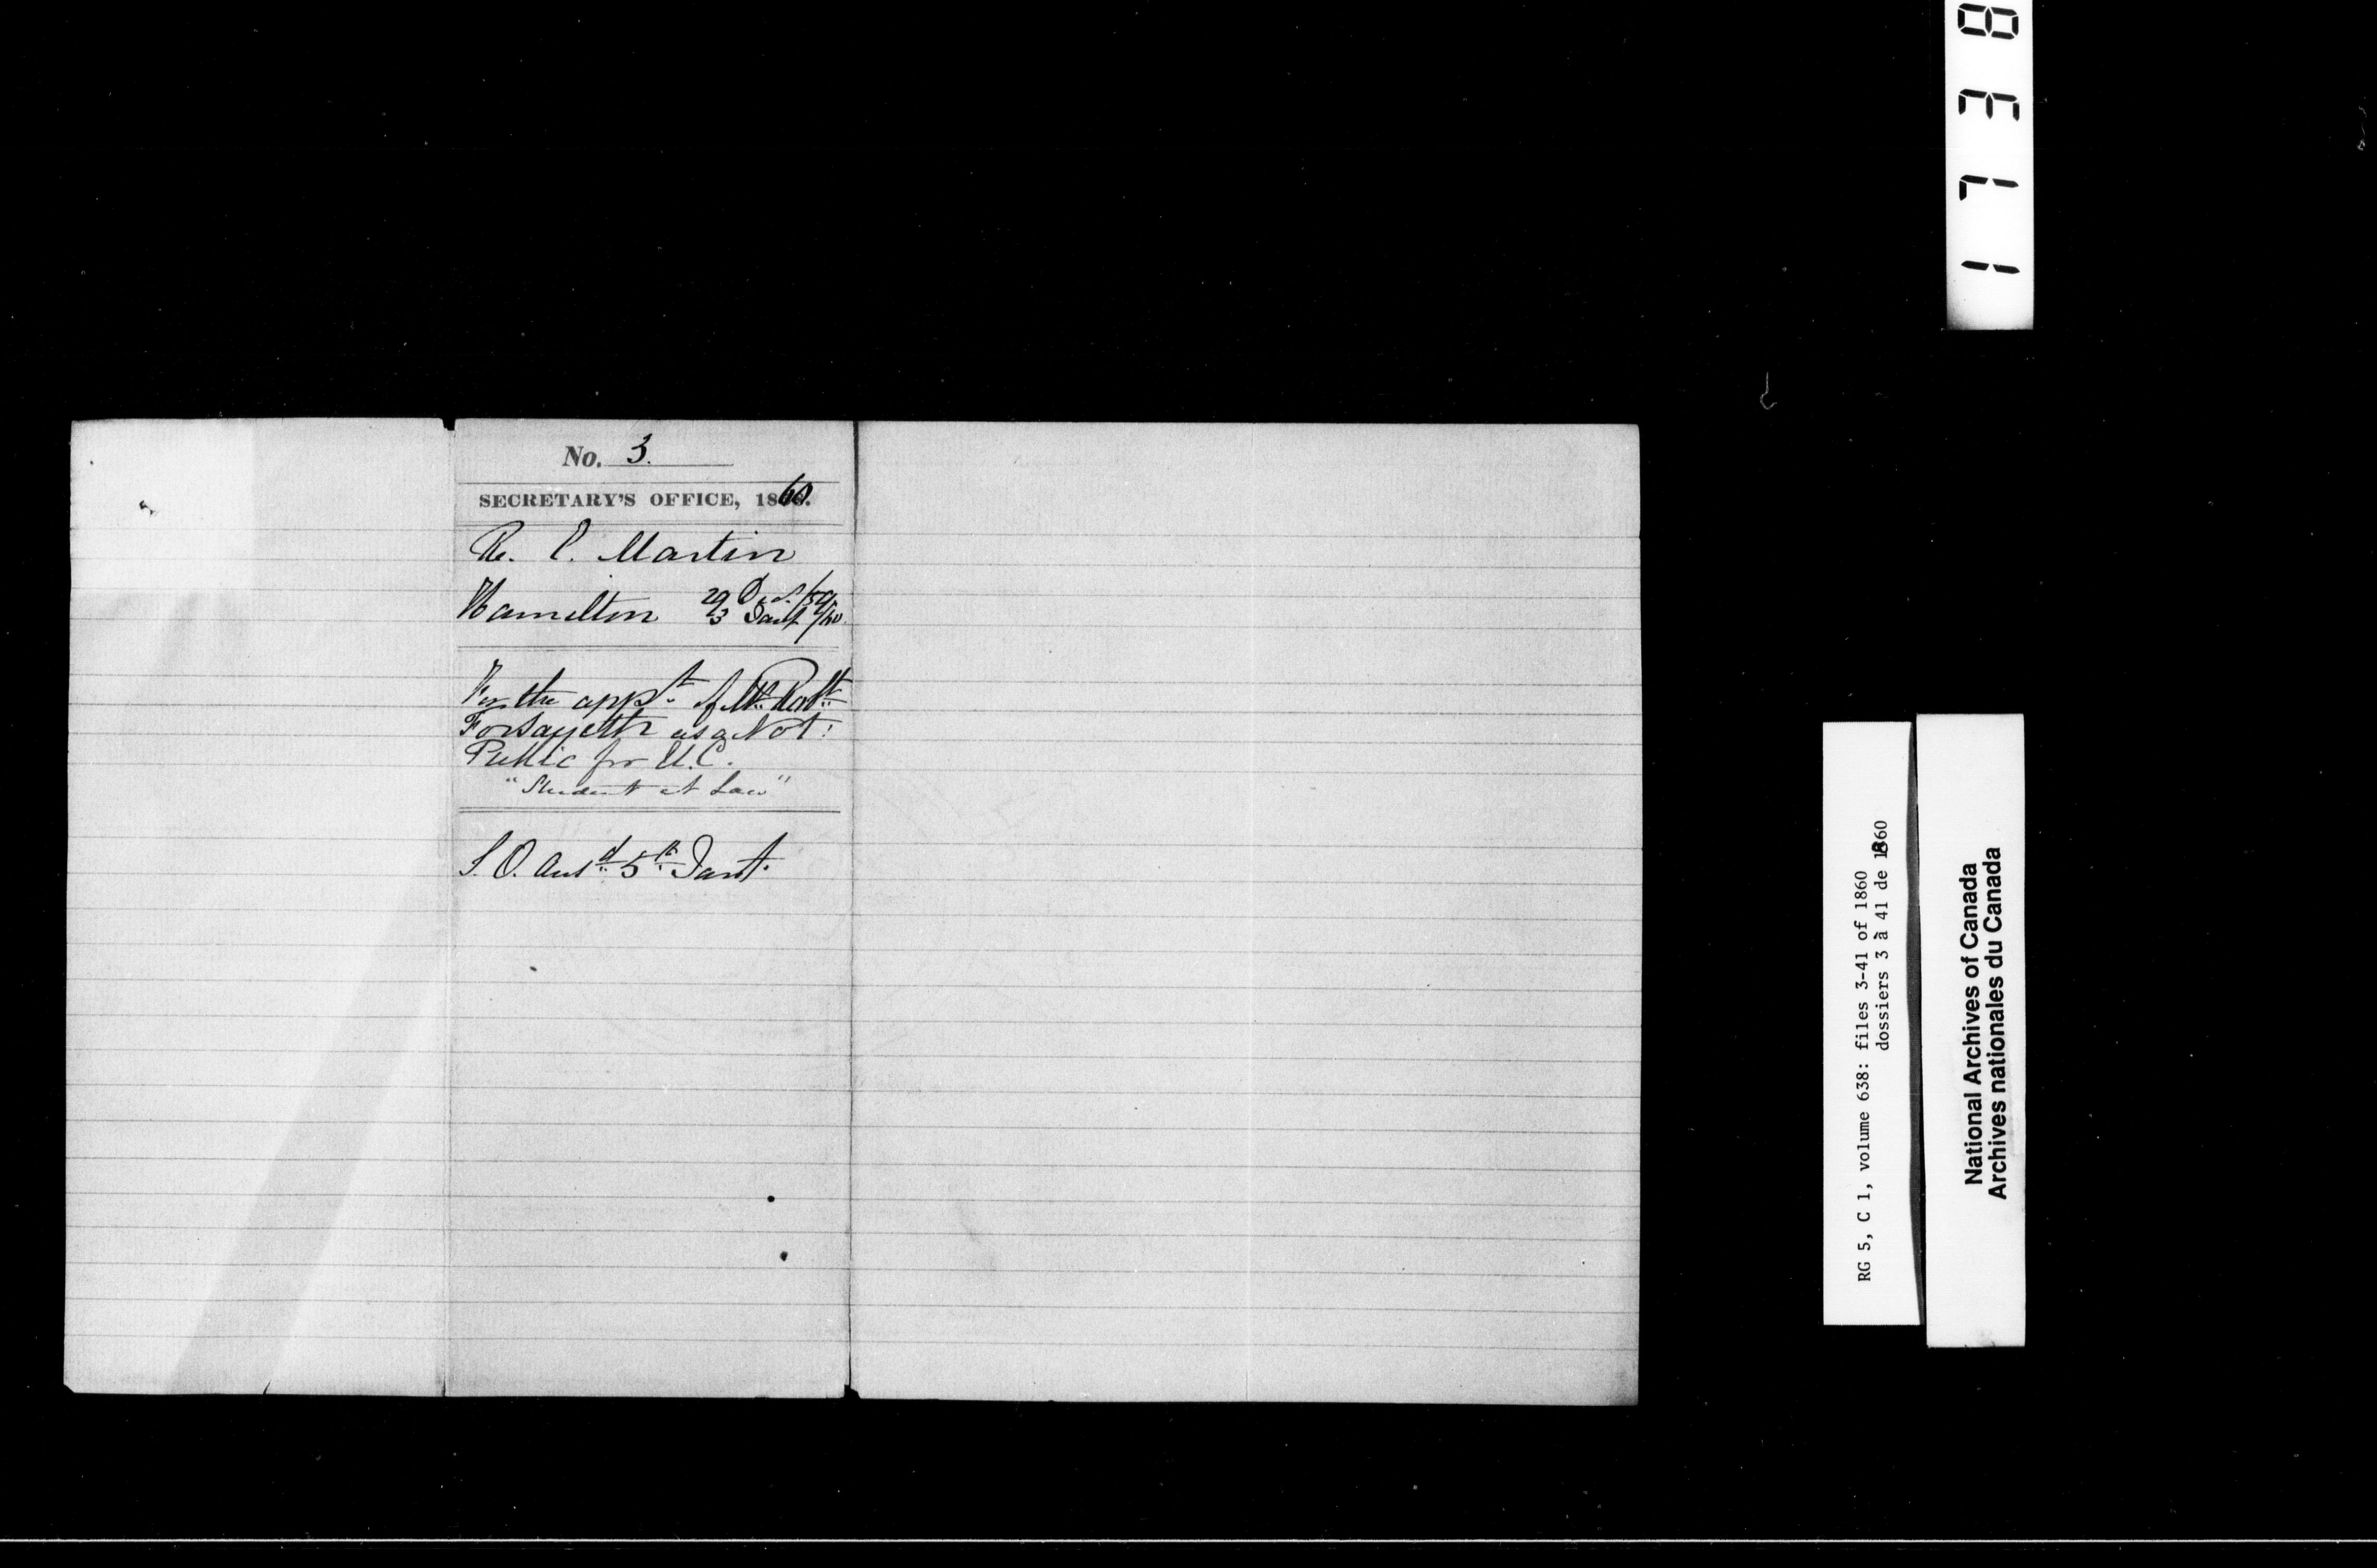 No. 3.
SECRETARY'S OFFICE, 1860.
Re. C. Martin
Hamilton 29 Decr. /59
3 Jany /60.
For the appt. of Mr. Robt.
Forsayeth as a Not:
Public for U.C.
"Student at Law"
S. O. Ansd. 5th Jany.
1738
RG 5, C 1, volume 638: files 3-41 of 1860
dossiers 3 à 41 de 1860
National Archives of Canada
Archives nationales du Canada